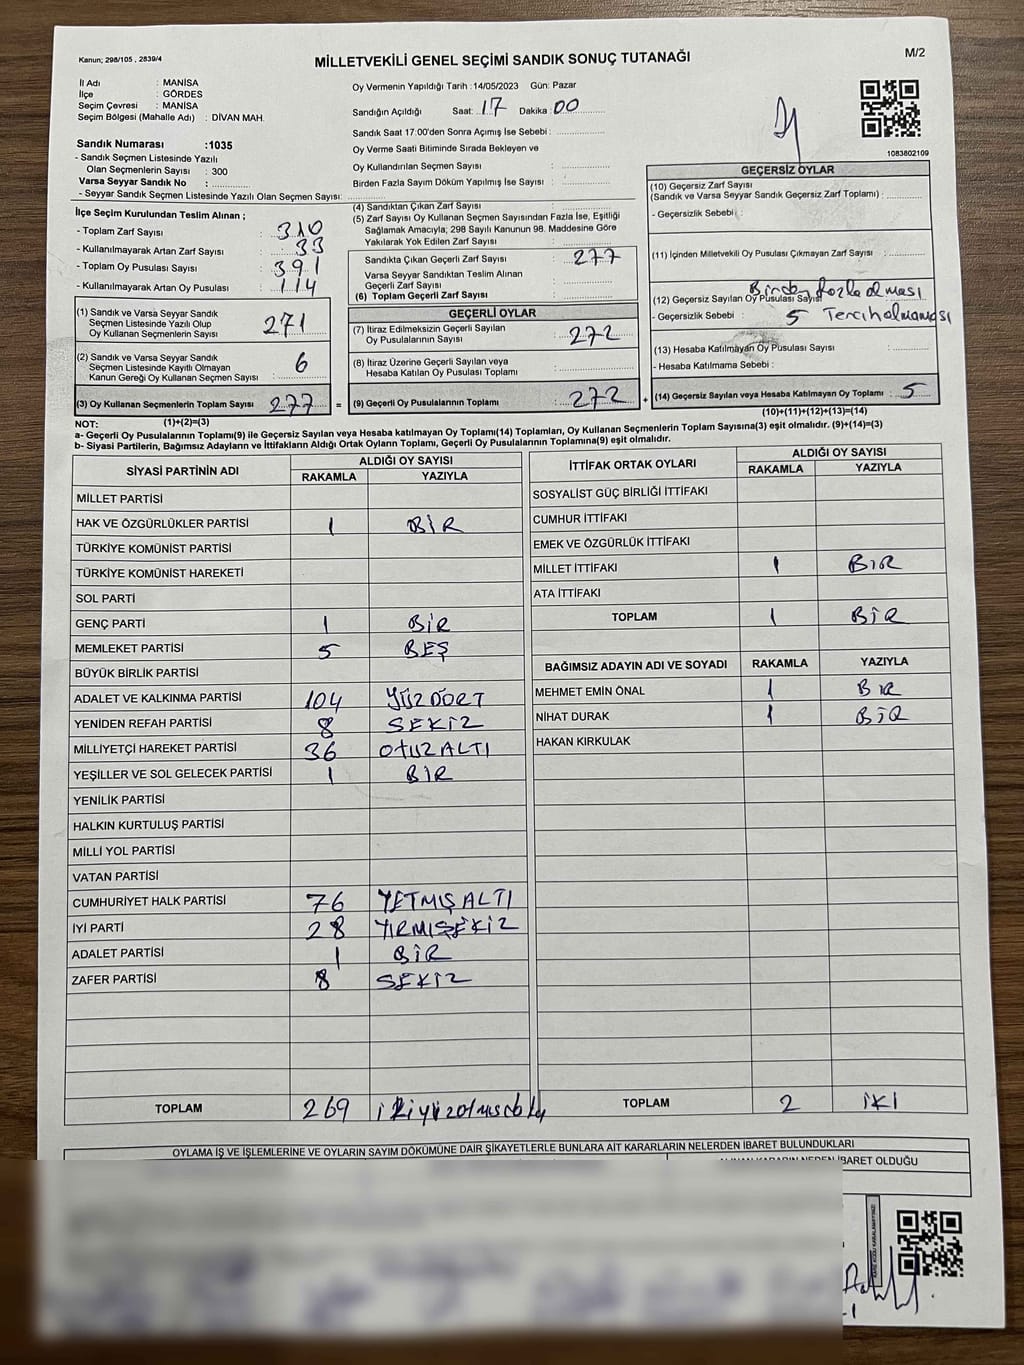 Kanun; 298/105 , 2839/4
MİLLETVEKİLİ GENEL SEÇİMİ SANDIK SONUÇ TUTANAĞI
M/2
İl Adı : MANİSA
İlçe : GÖRDES
Seçim Çevresi : MANİSA
Seçim Bölgesi (Mahalle Adı) : DİVAN MAH.
Sandık Numarası :1035
- Sandık Seçmen Listesinde Yazılı
Olan Seçmenlerin Sayısı : 300
Varsa Seyyar Sandık No :
- Seyyar Sandık Seçmen Listesinde Yazılı Olan Seçmen Sayısı:
Oy Vermenin Yapıldığı Tarih :14/05/2023 Gün: Pazar
Sandığın Açıldığı Saat: 17 Dakika: 00
Sandık Saat 17:00'den Sonra Açımış İse Sebebi :
Oy Verme Saati Bitiminde Sırada Bekleyen ve
Oy Kullandırılan Seçmen Sayısı :
Birden Fazla Sayım Döküm Yapılmış İse Sayısı :
1083802109
İlçe Seçim Kurulundan Teslim Alınan ;
- Toplam Zarf Sayısı : 310
- Kullanılmayarak Artan Zarf Sayısı : 33
- Toplam Oy Pusulası Sayısı : 391
- Kullanılmayarak Artan Oy Pusulası : 114
(1) Sandık ve Varsa Seyyar Sandık
Seçmen Listesinde Yazılı Olup
Oy Kullanan Seçmenlerin Sayısı : 271
(2) Sandık ve Varsa Seyyar Sandık
Seçmen Listesinde Kayıtlı Olmayan
Kanun Gereği Oy Kullanan Seçmen Sayısı : 6
(3) Oy Kullanan Seçmenlerin Toplam Sayısı : 277
(1)+(2)=(3)
(4) Sandıktan Çıkan Zarf Sayısı :
(5) Zarf Sayısı Oy Kullanan Seçmen Sayısından Fazla İse, Eşitliği
Sağlamak Amacıyla; 298 Sayılı Kanunun 98. Maddesine Göre
Yakılarak Yok Edilen Zarf Sayısı :
Sandıkta Çıkan Geçerli Zarf Sayısı : 277
Varsa Seyyar Sandıktan Teslim Alınan
Geçerli Zarf Sayısı :
(6) Toplam Geçerli Zarf Sayısı :
GEÇERLİ OYLAR
(7) İtiraz Edilmeksizin Geçerli Sayılan
Oy Pusulalarının Sayısı : 272
(8) İtiraz Üzerine Geçerli Sayılan veya
Hesaba Katılan Oy Pusulası Toplamı :
= (9) Geçerli Oy Pusulalarının Toplamı : 272
GEÇERSİZ OYLAR
(10) Geçersiz Zarf Sayısı
(Sandık ve Varsa Seyyar Sandık Geçersiz Zarf Toplamı) :
- Geçersizlik Sebebi :
(11) İçinden Milletvekili Oy Pusulası Çıkmayan Zarf Sayısı :
(12) Geçersiz Sayılan Oy Pusulası Sayısı
fazla olması
- Geçersizlik Sebebi : 5
(13) Hesaba Katılmayan Oy Pusulası Sayısı :
- Hesaba Katılmama Sebebi :
+ (14) Geçersiz Sayılan veya Hesaba Katılmayan Oy Toplamı : 5
(10)+(11)+(12)+(13)=(14)
NOT:
a- Geçerli Oy Pusulalarının Toplamı(9) ile Geçersiz Sayılan veya Hesaba katılmayan Oy Toplamı(14) Toplamları, Oy Kullanan Seçmenlerin Toplam Sayısına(3) eşit olmalıdır. (9)+(14)=(3)
b- Siyasi Partilerin, Bağımsız Adayların ve İttifakların Aldığı Ortak Oyların Toplamı, Geçerli Oy Pusulalarının Toplamına(9) eşit olmalıdır.
SİYASİ PARTİNİN ADI
ALDIĞI OY SAYISI
RAKAMLA YAZIYLA
MİLLET PARTİSİ
HAK VE ÖZGÜRLÜKLER PARTİSİ 1 BİR
TÜRKİYE KOMÜNİST PARTİSİ
TÜRKİYE KOMÜNİST HAREKETİ
SOL PARTİ
GENÇ PARTİ 1 BİR
MEMLEKET PARTİSİ 5 BEŞ
BÜYÜK BİRLİK PARTİSİ
ADALET VE KALKINMA PARTİSİ 104 YÜZ DÖRT
YENİDEN REFAH PARTİSİ 8 SEKİZ
MİLLİYETÇİ HAREKET PARTİSİ 36 OTUZ ALTI
YEŞİLLER VE SOL GELECEK PARTİSİ 1 BİR
YENİLİK PARTİSİ
HALKIN KURTULUŞ PARTİSİ
MİLLİ YOL PARTİSİ
VATAN PARTİSİ
CUMHURİYET HALK PARTİSİ 76 YETMİŞ ALTI
İYİ PARTİ 28 YİRMİŞEKİZ
ADALET PARTİSİ 1 BİR
ZAFER PARTİSİ 8 SEKİZ
TOPLAM 269
İTTİFAK ORTAK OYLARI
ALDIĞI OY SAYISI
RAKAMLA YAZIYLA
SOSYALİST GÜÇ BİRLİĞİ İTTİFAKI
CUMHUR İTTİFAKI
EMEK VE ÖZGÜRLÜK İTTİFAKI
MİLLET İTTİFAKI 1 BİR
ATA İTTİFAKI
TOPLAM 1 BİR
BAĞIMSIZ ADAYIN ADI VE SOYADI RAKAMLA YAZIYLA
MEHMET EMİN ÖNAL 1 BİR
NİHAT DURAK 1 BİR
HAKAN KIRKULAK
TOPLAM 2 İKİ
OYLAMA İŞ VE İŞLEMLERİNE VE OYLARIN SAYIM DÖKÜMÜNE DAİR ŞİKAYETLERLE BUNLARA AİT KARARLARIN NELERDEN İBARET BULUNDUKLARI
İBARET OLDUĞU